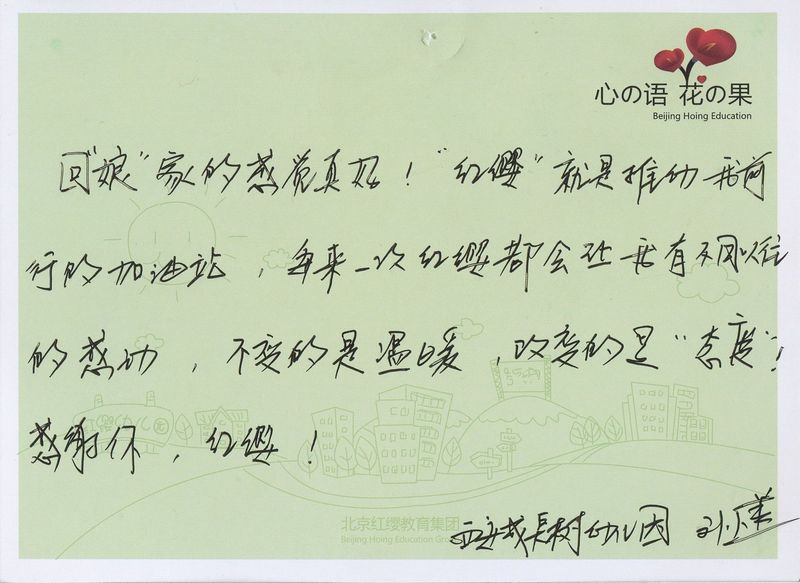 心の语 花の果
Beijing Hoing Education
回"娘"家的感觉真好！"红缨"就是推动我前
行的加油站，每来一次红缨都会让我有不同以往
的感动，不变的是温暖，改变的是"态度"！
感谢你，红缨！
红缨幼儿园
北京红缨教育集团
Beijing Hoing Education Gro
西安成长树幼儿园 孙